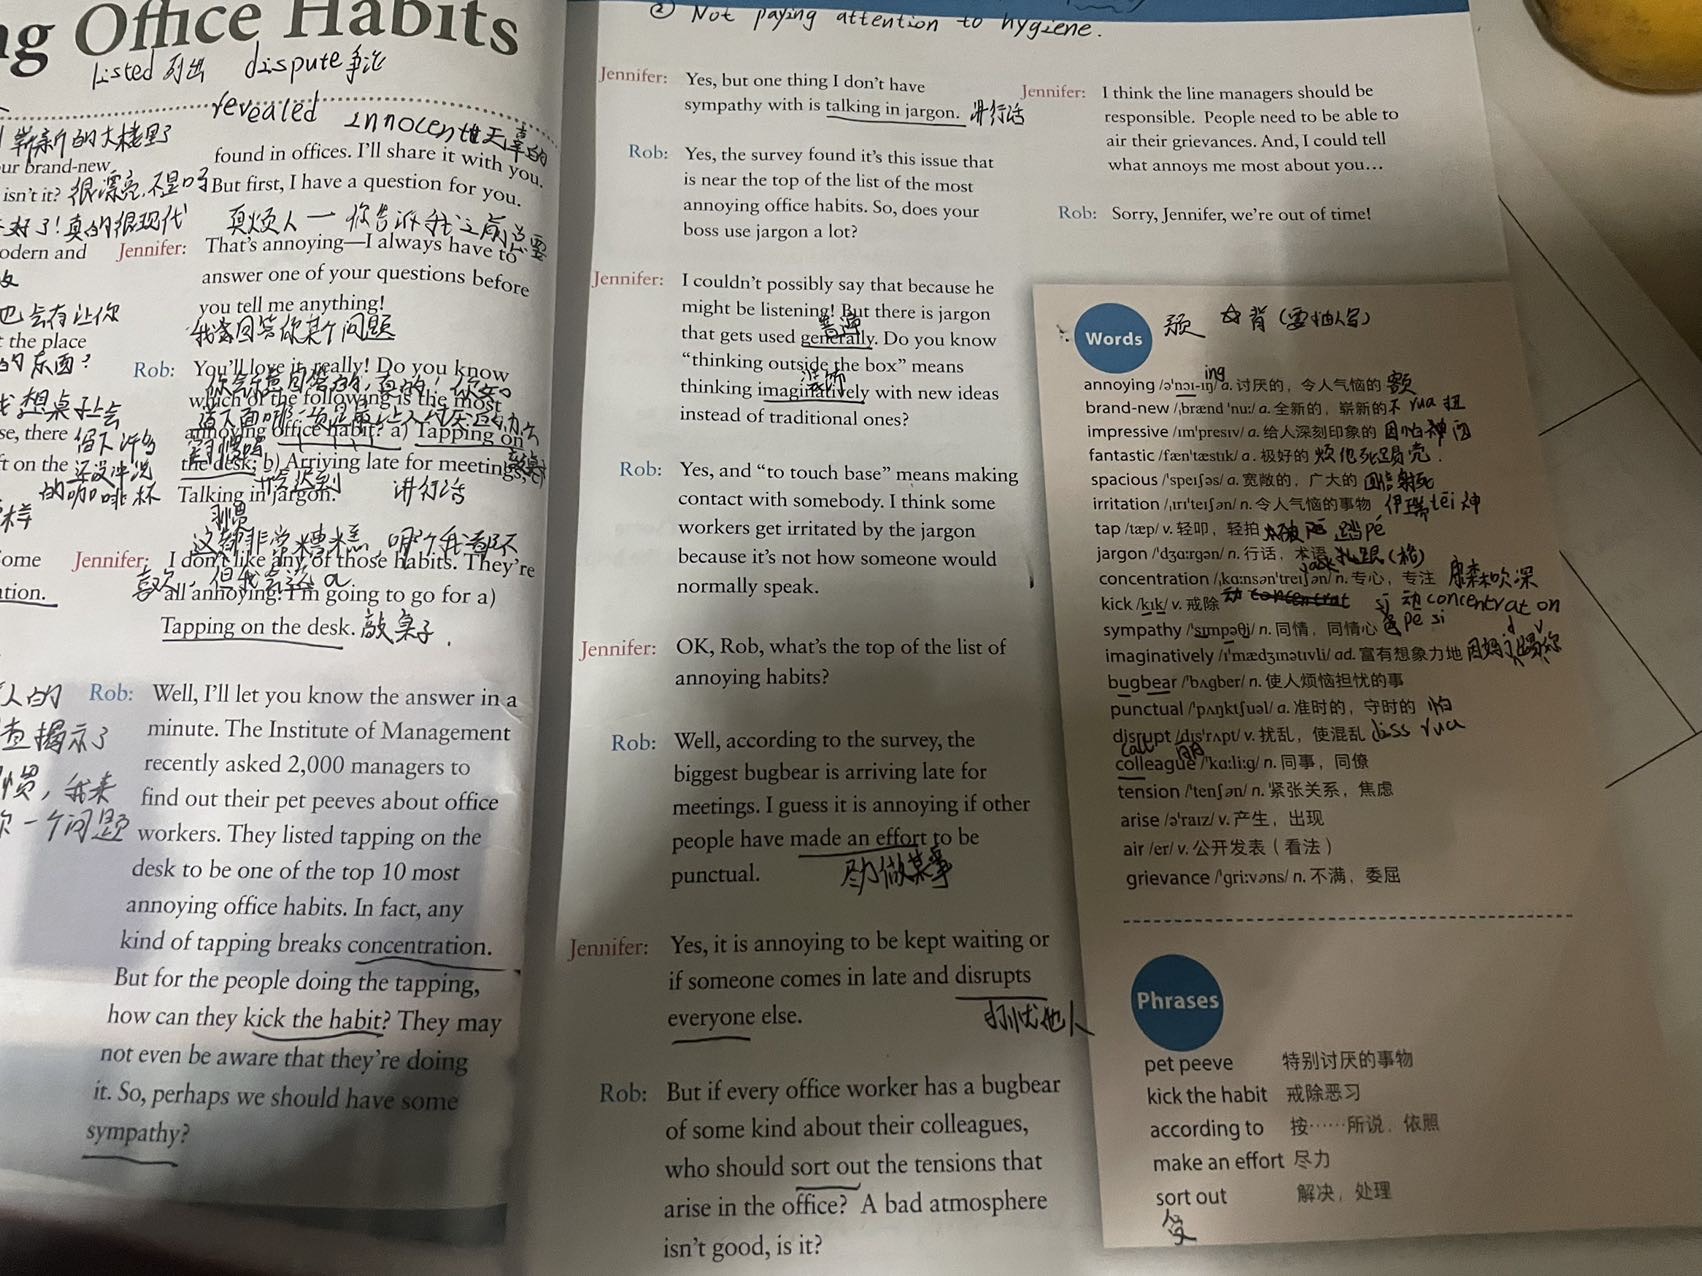 ng Office Habits
listed 列出 dispute 争论
revealed innocent 无辜的
崭新的大楼里
found in offices. I'll share it with you.
our brand-new
isn't it? 很漂亮,不是吗
But first, I have a question for you.
好了!真的很现代
真烦人一 你告诉我之前总要
odern and
Jennifer: That's annoying—I always have to
answer one of your questions before
you tell me anything!
也会有让你
the place
我需回答你某个问题
的东西?
Rob: You'll love it, really! Do you know
which of the following is the most
想桌子上会
se, there 留下许多
annoying office habit? a) Tapping on
ft on the 还没冲洗
the desk; b) Arriving late for meetings; c)
的咖啡杯
Talking in jargon. 讲行话
习惯
这都非常糟糕 哪个我都不
ome
Jennifer: I don't like any of those habits. They're
喜欢,但我
ation.
all annoying! I'm going to go for a)
Tapping on the desk. 敲桌子.
人的
Rob: Well, I'll let you know the answer in a
minute. The Institute of Management
查揭示了
recently asked 2,000 managers to
惯,我来
find out their pet peeves about office
一个问题
workers. They listed tapping on the
desk to be one of the top 10 most
annoying office habits. In fact, any
kind of tapping breaks concentration.
But for the people doing the tapping,
how can they kick the habit? They may
not even be aware that they're doing
it. So, perhaps we should have some
sympathy?
② Not paying attention to hygiene.
Jennifer: Yes, but one thing I don't have
sympathy with is talking in jargon. 讲行话
Rob: Yes, the survey found it's this issue that
is near the top of the list of the most
annoying office habits. So, does your
boss use jargon a lot?
Jennifer: I couldn't possibly say that because he
might be listening! But there is jargon
普遍
that gets used generally. Do you know
"thinking outside the box" means
thinking imaginatively with new ideas
instead of traditional ones?
Rob: Yes, and "to touch base" means making
contact with somebody. I think some
workers get irritated by the jargon
because it's not how someone would
normally speak.
Jennifer: OK, Rob, what's the top of the list of
annoying habits?
Rob: Well, according to the survey, the
biggest bugbear is arriving late for
meetings. I guess it is annoying if other
people have made an effort to be
punctual. 尽力做某事
Jennifer: Yes, it is annoying to be kept waiting or
if someone comes in late and disrupts
everyone else. 打扰他人
Rob: But if every office worker has a bugbear
of some kind about their colleagues,
who should sort out the tensions that
arise in the office? A bad atmosphere
isn't good, is it?
Jennifer: I think the line managers should be
responsible. People need to be able to
air their grievances. And, I could tell
what annoys me most about you…
Rob: Sorry, Jennifer, we're out of time!
Words ☆背(要抽写)
ing
annoying /ə'nɔɪ-ɪŋ/ a. 讨厌的,令人气恼的 额
brand-new /ˌbrænd 'nuː/ a. 全新的,崭新的 不rua扭
impressive /ɪm'presɪv/ a. 给人深刻印象的 因怕神
fantastic /fæn'tæstɪk/ a. 极好的 烦他死踢壳.
spacious /'speɪʃəs/ a. 宽敞的,广大的
irritation /ˌɪrɪ'teɪʃən/ n. 令人气恼的事物 伊瑞tēi神
tap /tæp/ v. 轻叩,轻拍 踏pé
jargon /'dʒɑːrgən/ n. 行话,术语
concentration /ˌkɑːnsən'treɪʃən/ n. 专心,专注 康森吹深
kick /kɪk/ v. 戒除 动 concentrat on
sympathy /'sɪmpəθi/ n. 同情,同情心 pé si
imaginatively /ɪ'mædʒɪnətɪvli/ ad. 富有想象力地
bugbear /'bʌgber/ n. 使人烦恼担忧的事
punctual /'pʌŋktʃuəl/ a. 准时的,守时的 怕
disrupt /dɪs'rʌpt/ v. 扰乱,使混乱 diss rua
call
colleague /'kɑːliːg/ n. 同事,同僚
tension /'tenʃən/ n. 紧张关系,焦虑
arise /ə'raɪz/ v. 产生,出现
air /er/ v. 公开发表(看法)
grievance /'griːvəns/ n. 不满,委屈
Phrases
pet peeve 特别讨厌的事物
kick the habit 戒除恶习
according to 按……所说,依照
make an effort 尽力
sort out 解决,处理